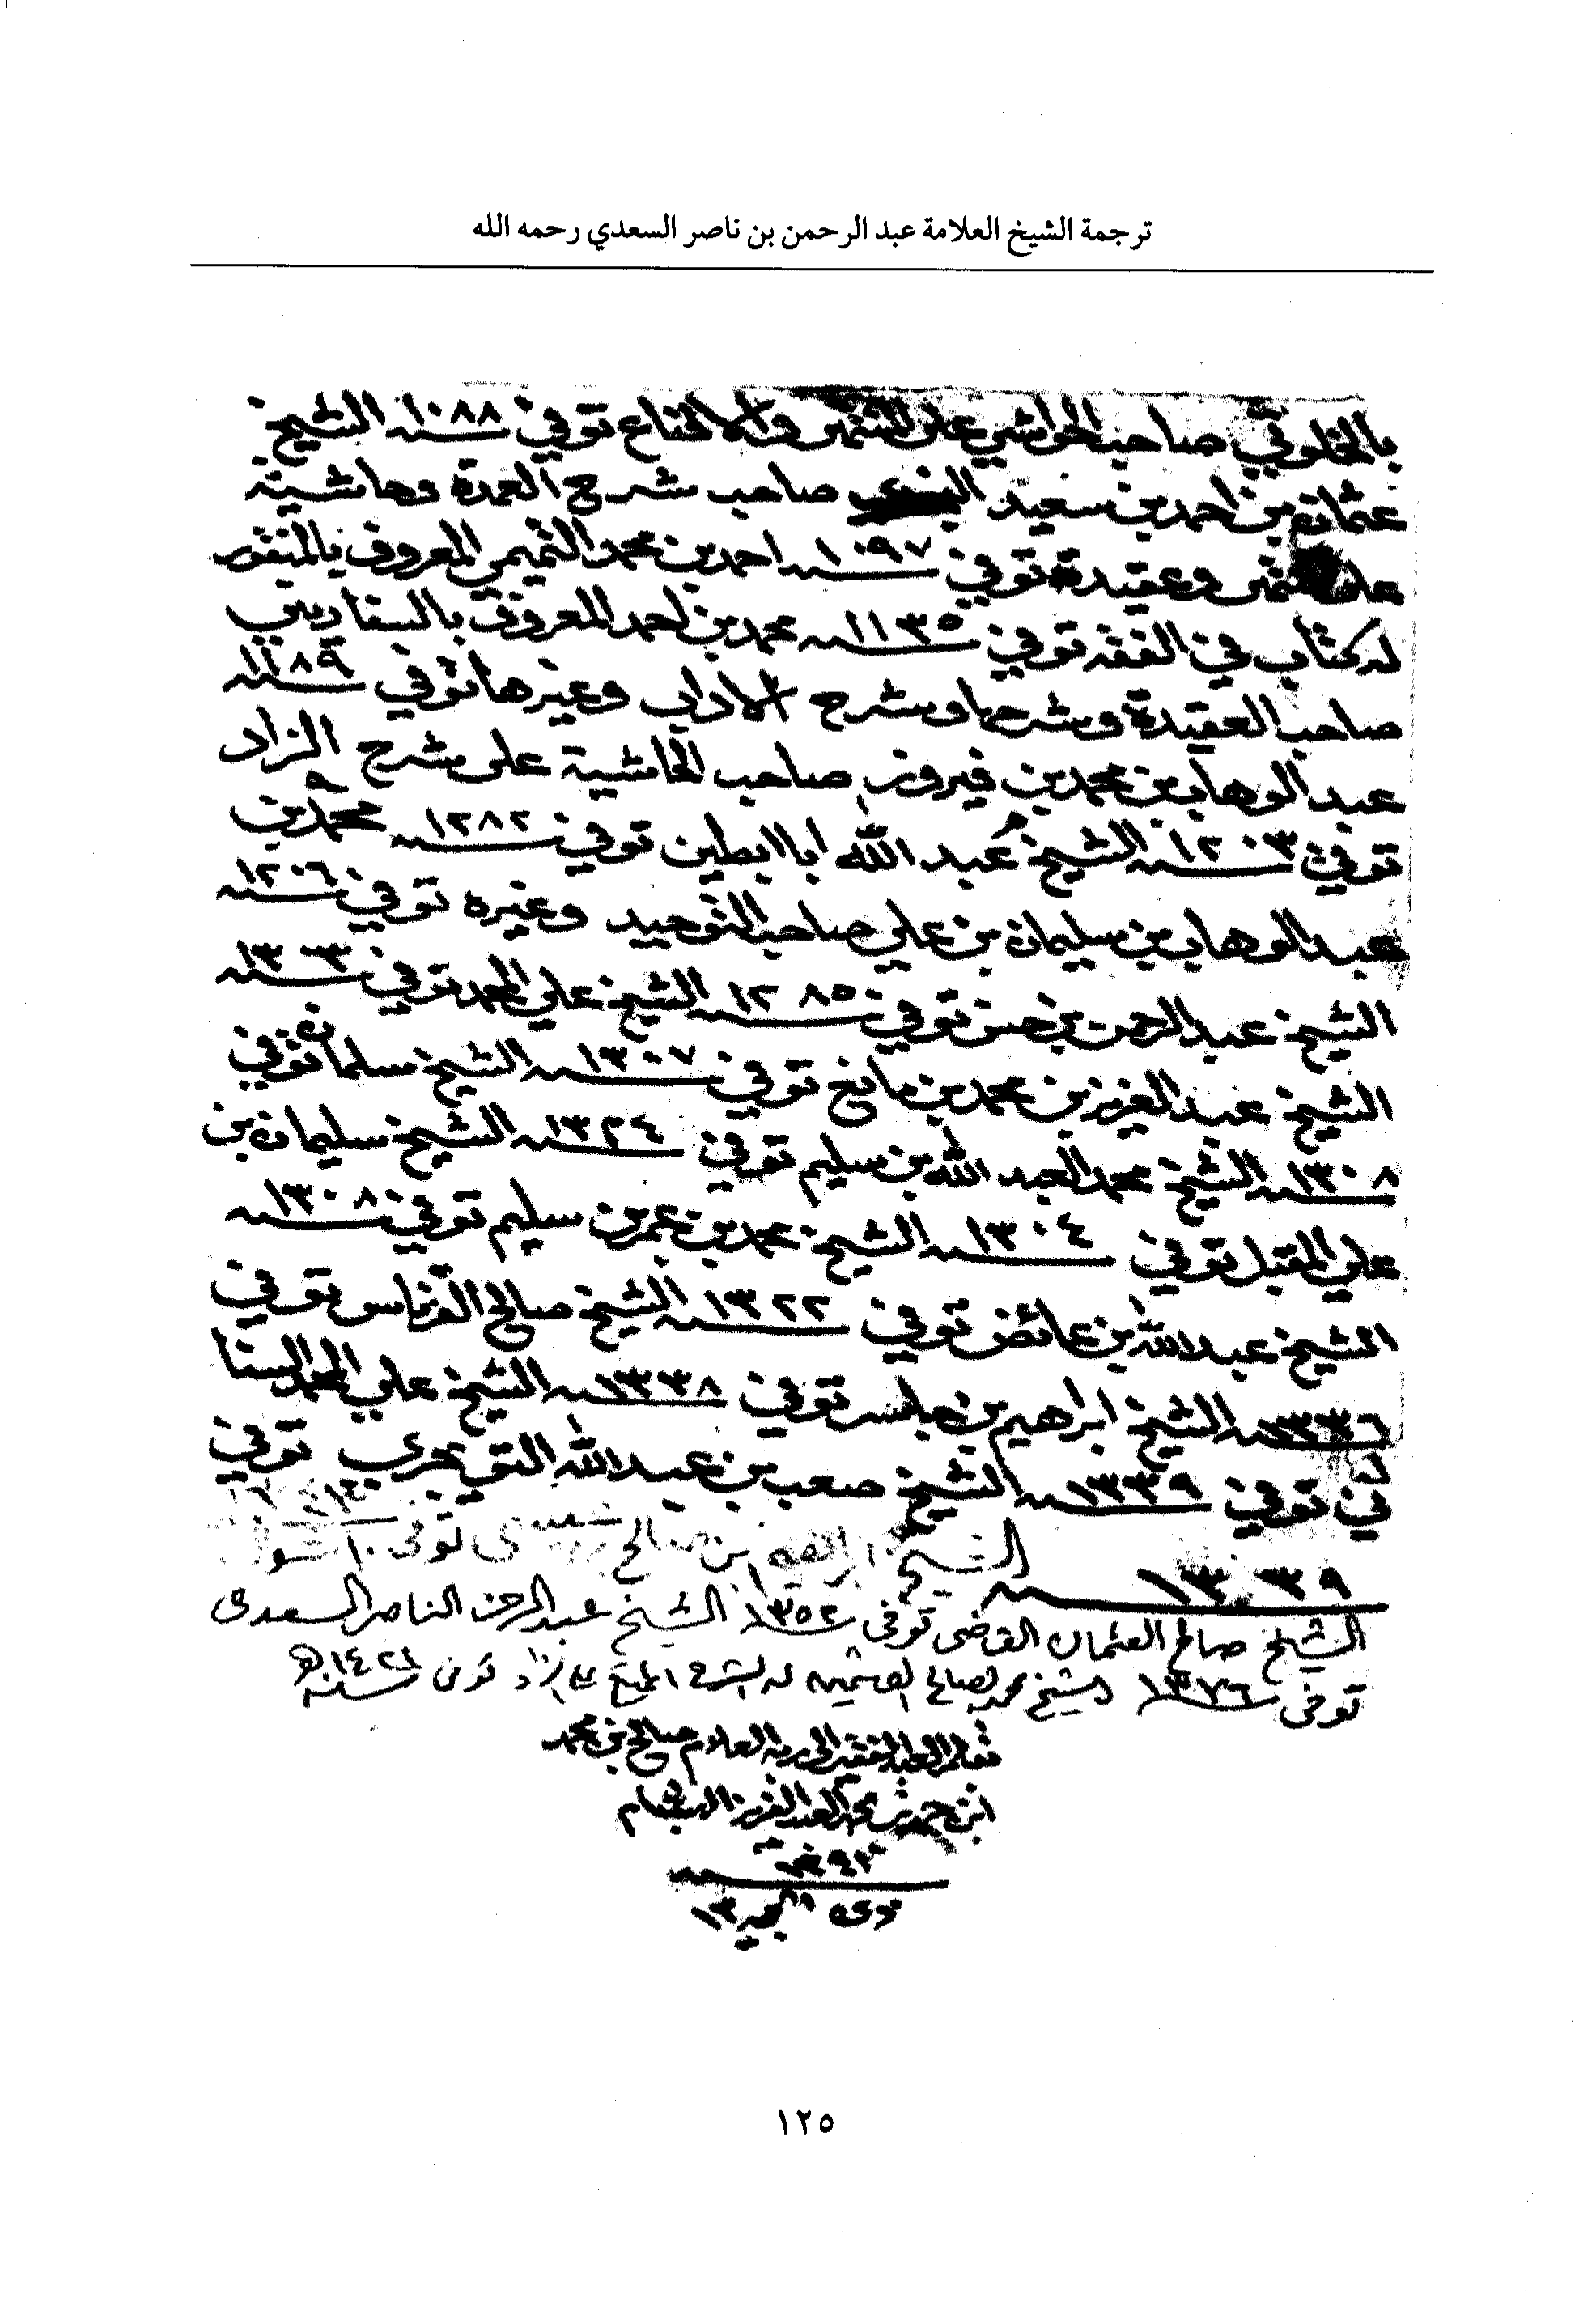 ترجمة الشيخ العلامة عبد الرحمن بن ناصر السعدي رحمه الله
بالخلوتي صاحب الحواشي على المنتهى والاقناع توفي سنة ١٠٨٨ الشيخ
عثمان بن احمد بن سعيد النجدي صاحب شرح العمدة وحاشية
على وعقيدة توفي سنة ١٠٩٧ احمد بن محمد التميمي المعروف بالمنقور
له كتاب في الفقه توفي سنة ١١٣٥ محمد بن احمد المعروف بالسفاريني
صاحب العقيدة وشرحها وشرح الاداب وغيرها توفي سنة ١١٨٩
عبد الوهاب بن محمد بن فيروز صاحب الحاشية على شرح الزاد
توفي سنة ١٢٠٣ الشيخ عبد الله ابا ابطين توفي سنة ١٢٨٢ محمد بن
عبد الوهاب بن سليمان بن علي صاحب التوحيد وغيره توفي سنة ١٢٠٦
الشيخ عبد الرحمن بن حسن توفي سنة ١٢٨٥ الشيخ علي المحمد توفي سنة ١٣٠٣
الشيخ عبد العزيز بن محمد بن مانع توفي سنة ١٣٠٧ الشيخ سلمان توفي
سنة ١٣٠٨ الشيخ محمد العبد الله بن سليم توفي سنة ١٣٢٤ الشيخ سليمان بن
علي المقبل توفي سنة ١٣٠٤ الشيخ محمد بن عمر بن سليم توفي سنة ١٣٠٨
الشيخ عبد الله بن عائض توفي سنة ١٣٢٢ الشيخ صالح القرناس توفي
سنة ١٣٣٦ الشيخ ابراهيم بن جاسر توفي سنة ١٣٣٨ الشيخ علي المحمد السنا
ني توفي سنة ١٣٣٩ الشيخ صعب بن عبد الله التويجري توفي
سنة ١٣٣٩ الشيخ ابراهيم بن صالح توفي
الشيخ صالح العثمان القاضي توفى سنة ١٣٥٢ الشيخ عبد الرحمن الناصر السعدي
توفى سنة ١٣٧٦ الشيخ محمد الصالح العثيمين له الشرح الممتع على زاد توفى سنة ١٤٢١هـ
بقلم العبد الفقير الى ربه العلام صالح بن محمد
ابن حمد بن محمد العبد العزيز البسام
سنة ١٣٩٢
١٢٥